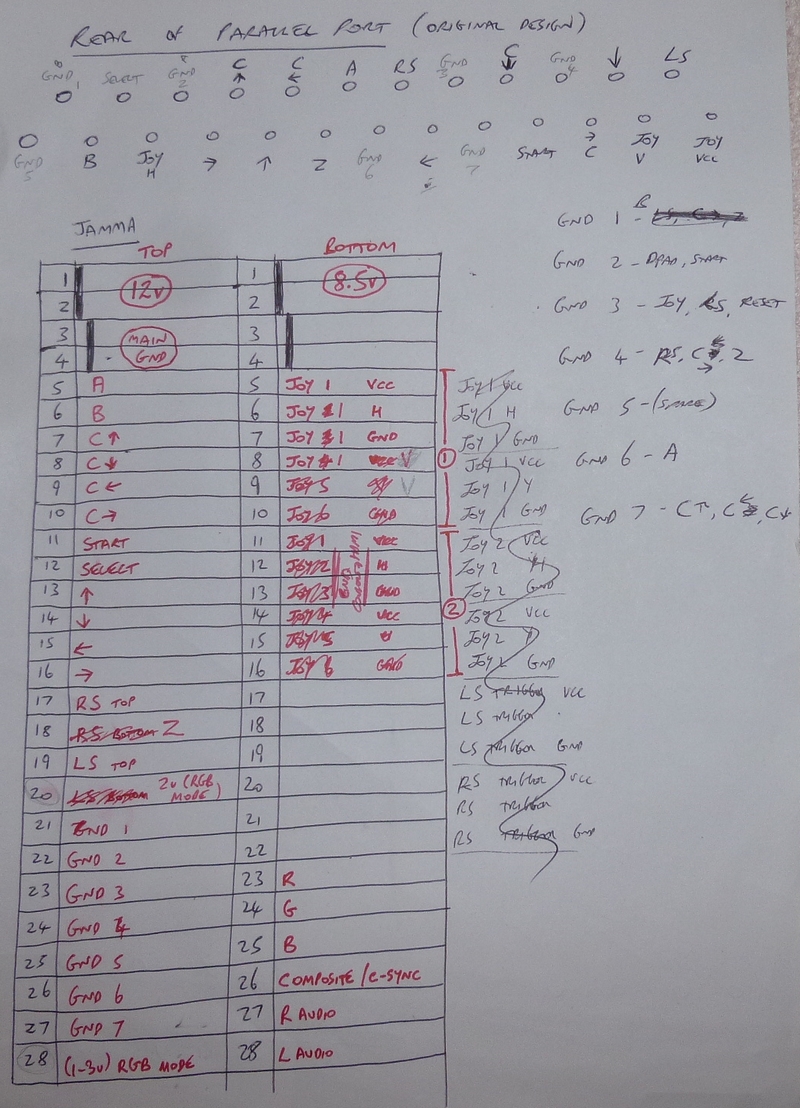 REAR OF PARALLEL PORT (ORIGINAL DESIGN)
GND 1 SELECT GND 2 C ↑ C ← A RS GND 3 C ↓ GND 4 ↓ LS
GND 5 B JOY H → ↑ Z GND 6 ← GND 7 START → C JOY V JOY VCC
JAMMA
TOP BOTTOM
GND 1 - B
GND 2 - DPAD, START
GND 3 - JOY, LS, RESET
GND 4 - RS, C →, Z
GND 5 - (SPARE)
GND 6 - A
GND 7 - C↑, C←, C↓
1 12v 1 8.5v
2 2
3 MAIN GND 3
4 4
5 A 5 JOY 1 VCC JOY 1 VCC
6 B 6 JOY 1 H JOY 1 H
7 C ↑ 7 JOY 1 GND JOY 1 GND
8 C ↓ 8 JOY 1 V ① JOY 1 VCC
9 C ← 9 JOY 5 V JOY 1 Y
10 C → 10 JOY 6 GND JOY 1 GND
11 START 11 JOY 1 VCC JOY 2 VCC
12 SELECT 12 JOY 2 H JOY 2 H
13 ↑ 13 JOY 3 GND JOY 2 GND
14 ↓ 14 JOY 4 VCC ② JOY 2 VCC
15 ← 15 JOY 5 H JOY 2 Y
16 → 16 JOY 6 GND JOY 2 GND
17 RS TOP 17 LS TRIGGER VCC
18 RS BOTTOM Z 18 LS TRIGGER
19 LS TOP 19 LS TRIGGER GND
20 LS BOTTOM 2v (RGB MODE) 20 RS TRIGGER VCC
21 GND 1 21 RS TRIGGER
22 GND 2 22 RS TRIGGER GND
23 GND 3 23 R
24 GND 4 24 G
25 GND 5 25 B
26 GND 6 26 COMPOSITE / C-SYNC
27 GND 7 27 R AUDIO
28 (1-3v) RGB MODE 28 L AUDIO